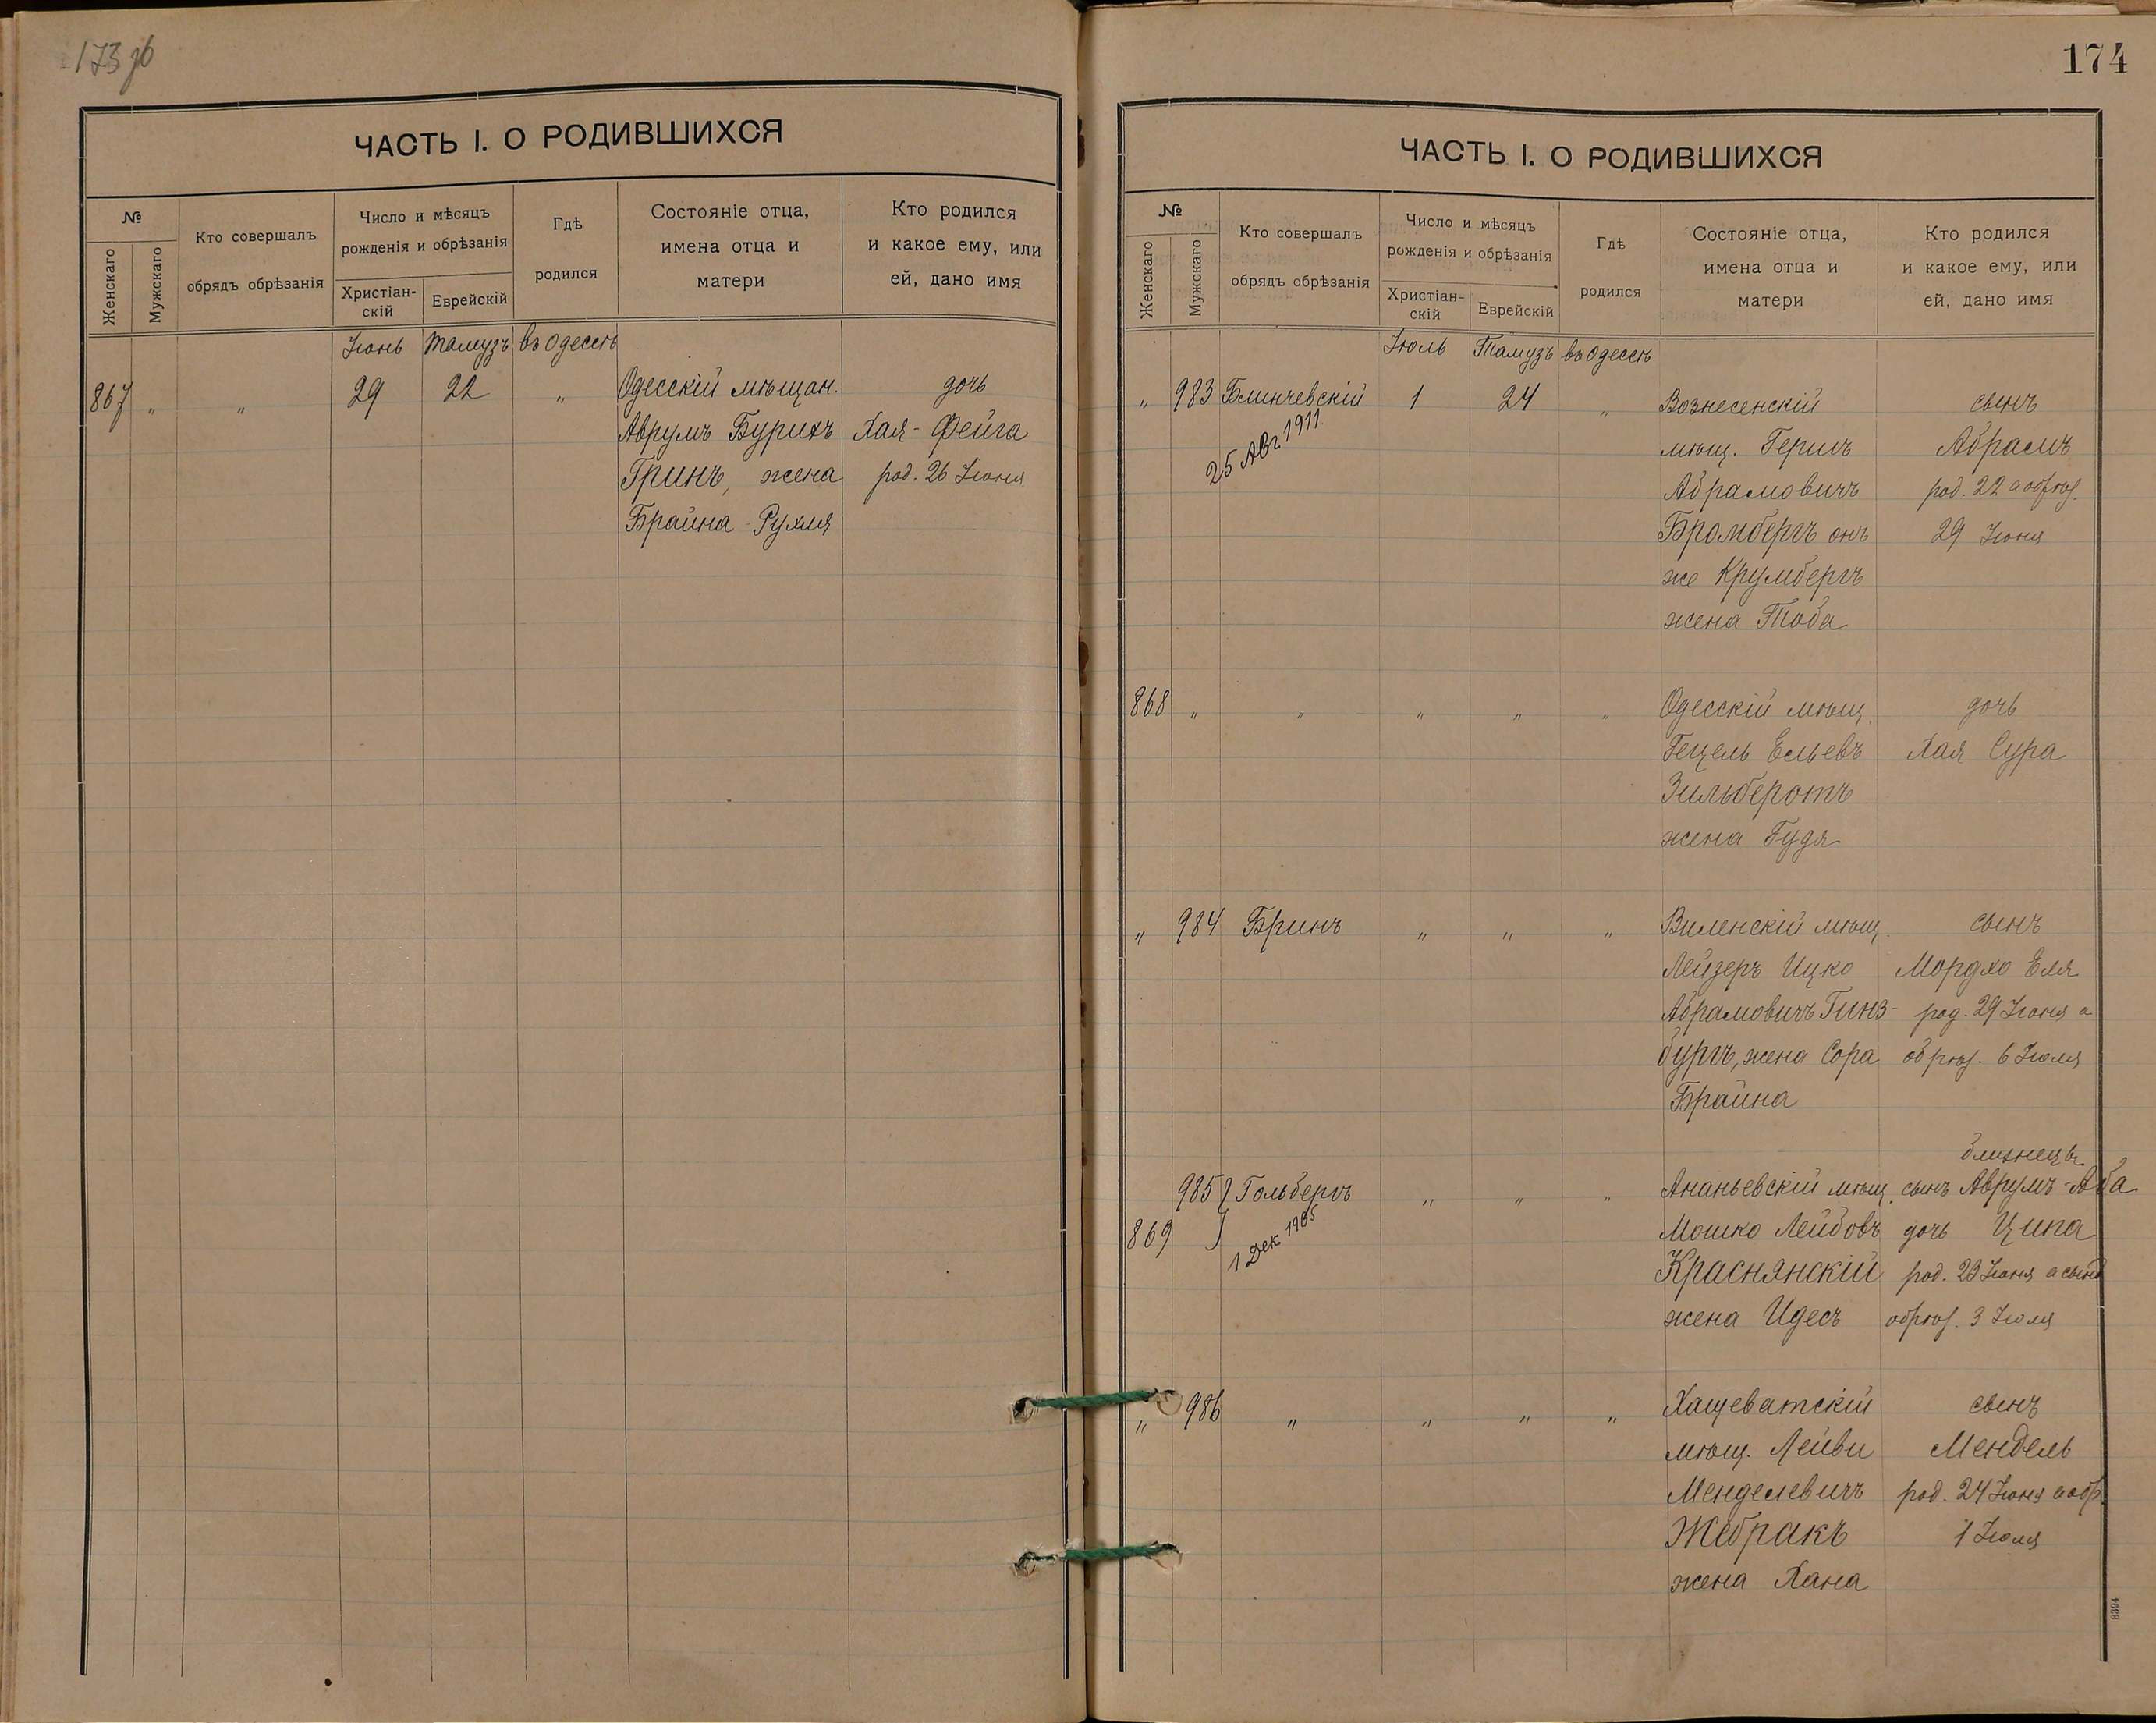 173 об
ЧАСТЬ I. О РОДИВШИХСЯ
№
Женскаго
Мужскаго
Кто совершалъ
обрядъ обрѣзанія
Число и мѣсяцъ
рожденія и обрѣзанія
Христіан-
скій
Еврейскій
Гдѣ
родился
Состояніе отца,
имена отца и
матери
Кто родился
и какое ему, или
ей, дано имя
Іюнь Тамузъ въ Одессѣ
867 " " 29 22 " Одесскій мѣщан. дочь
Аврумъ Бурихъ Хая-Фейга
Гринъ, жена род. 26 Іюня
Брайна-Рухля
174
ЧАСТЬ I. О РОДИВШИХСЯ
№
Женскаго
Мужскаго
Кто совершалъ
обрядъ обрѣзанія
Число и мѣсяцъ
рожденія и обрѣзанія
Христіан-
скій
Еврейскій
Гдѣ
родился
Состояніе отца,
имена отца и
матери
Кто родился
и какое ему, или
ей, дано имя
Іюль Тамузъ въ Одессѣ
" 983 Блинчевскій 1 24 " Вознесенскій сынъ
25 Авг 1911. мѣщ. Гершъ Абрамъ
Абрамовичъ род. 22 а обрѣз.
Бромбергъ онъ 29 Іюня
же Крумбергъ
жена Тоба
868 " " " " " Одесскій мѣщ. дочь
Гецель Ельевъ Хая Сура
Зильберотъ
жена Гудя
" 984 Бринъ " " " Виленскій мѣщ. сынъ
Лейзеръ Ицко Мордхо Еля
Абрамовичъ Гинз- род. 29 Іюня а
бургъ, жена Сора обрѣз. 6 Іюля
Брайна
близнецы
985 } Гольбергъ " " " Ананьевскій мѣщ. сынъ Аврумъ-Аба
869 1 Дек 1905 Мошко Лейбовъ дочь Ципа
Краснянскій род. 23 Іюня а сынъ
жена Идесъ обрѣз. 3 Іюля
" 986 " " " " Хащеватскій сынъ
мѣщ. Лейви Мендель
Менделевичъ род. 24 Іюня а обр.
Жебракъ 1 Іюля
жена Хана
8394